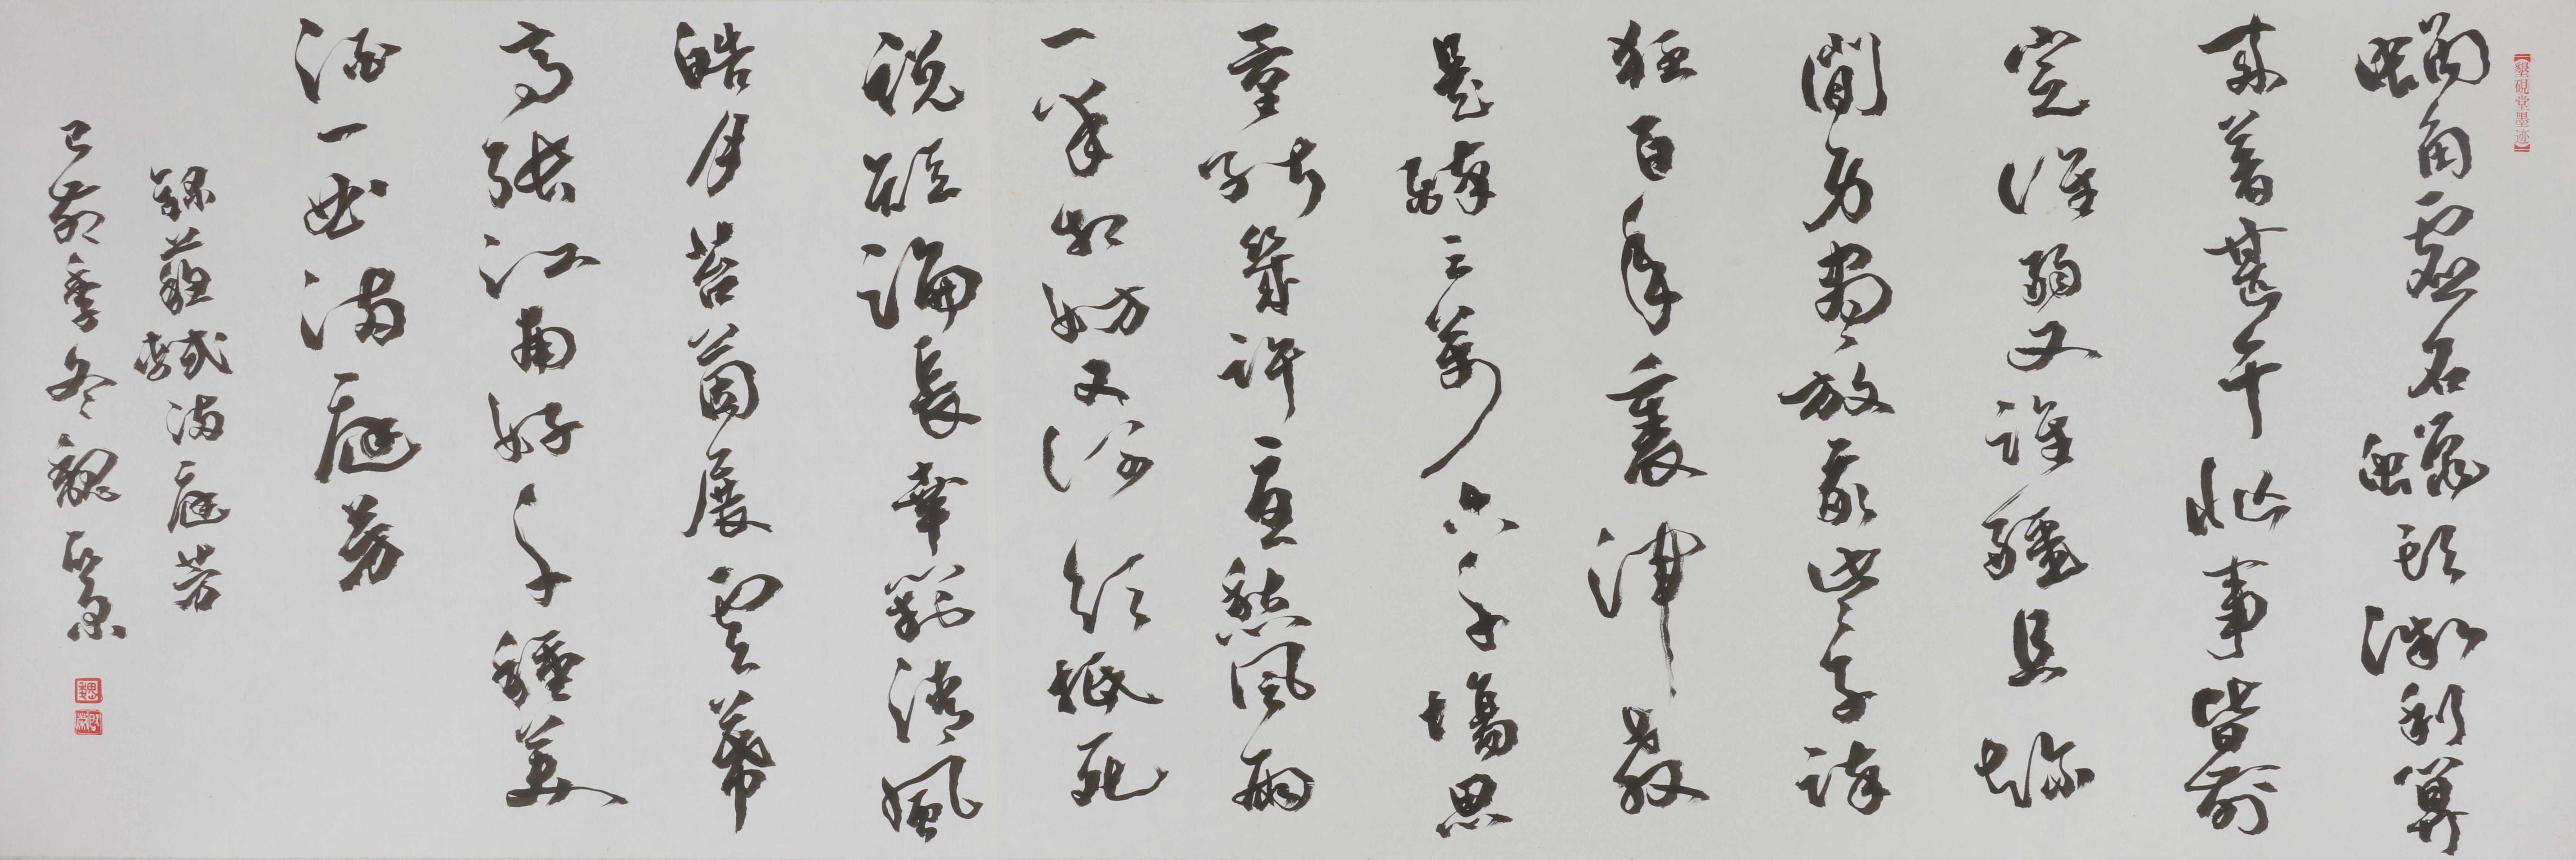 【墾硯堂墨迹】
蝸角虛名蠅頭微利算
來著甚干忙事皆前
定誰弱又誰彊且趁
閒身盡放我些子疎
狂百年裏渾教
是醉三萬六千場思
量能幾許憂愁風雨
一半相妨又何須抵死
說短論長幸對清風
皓月苔茵展雲幕
高張江南好千鍾美
酒一曲滿庭芳
錄蘇軾滿庭芳
己亥季冬魏